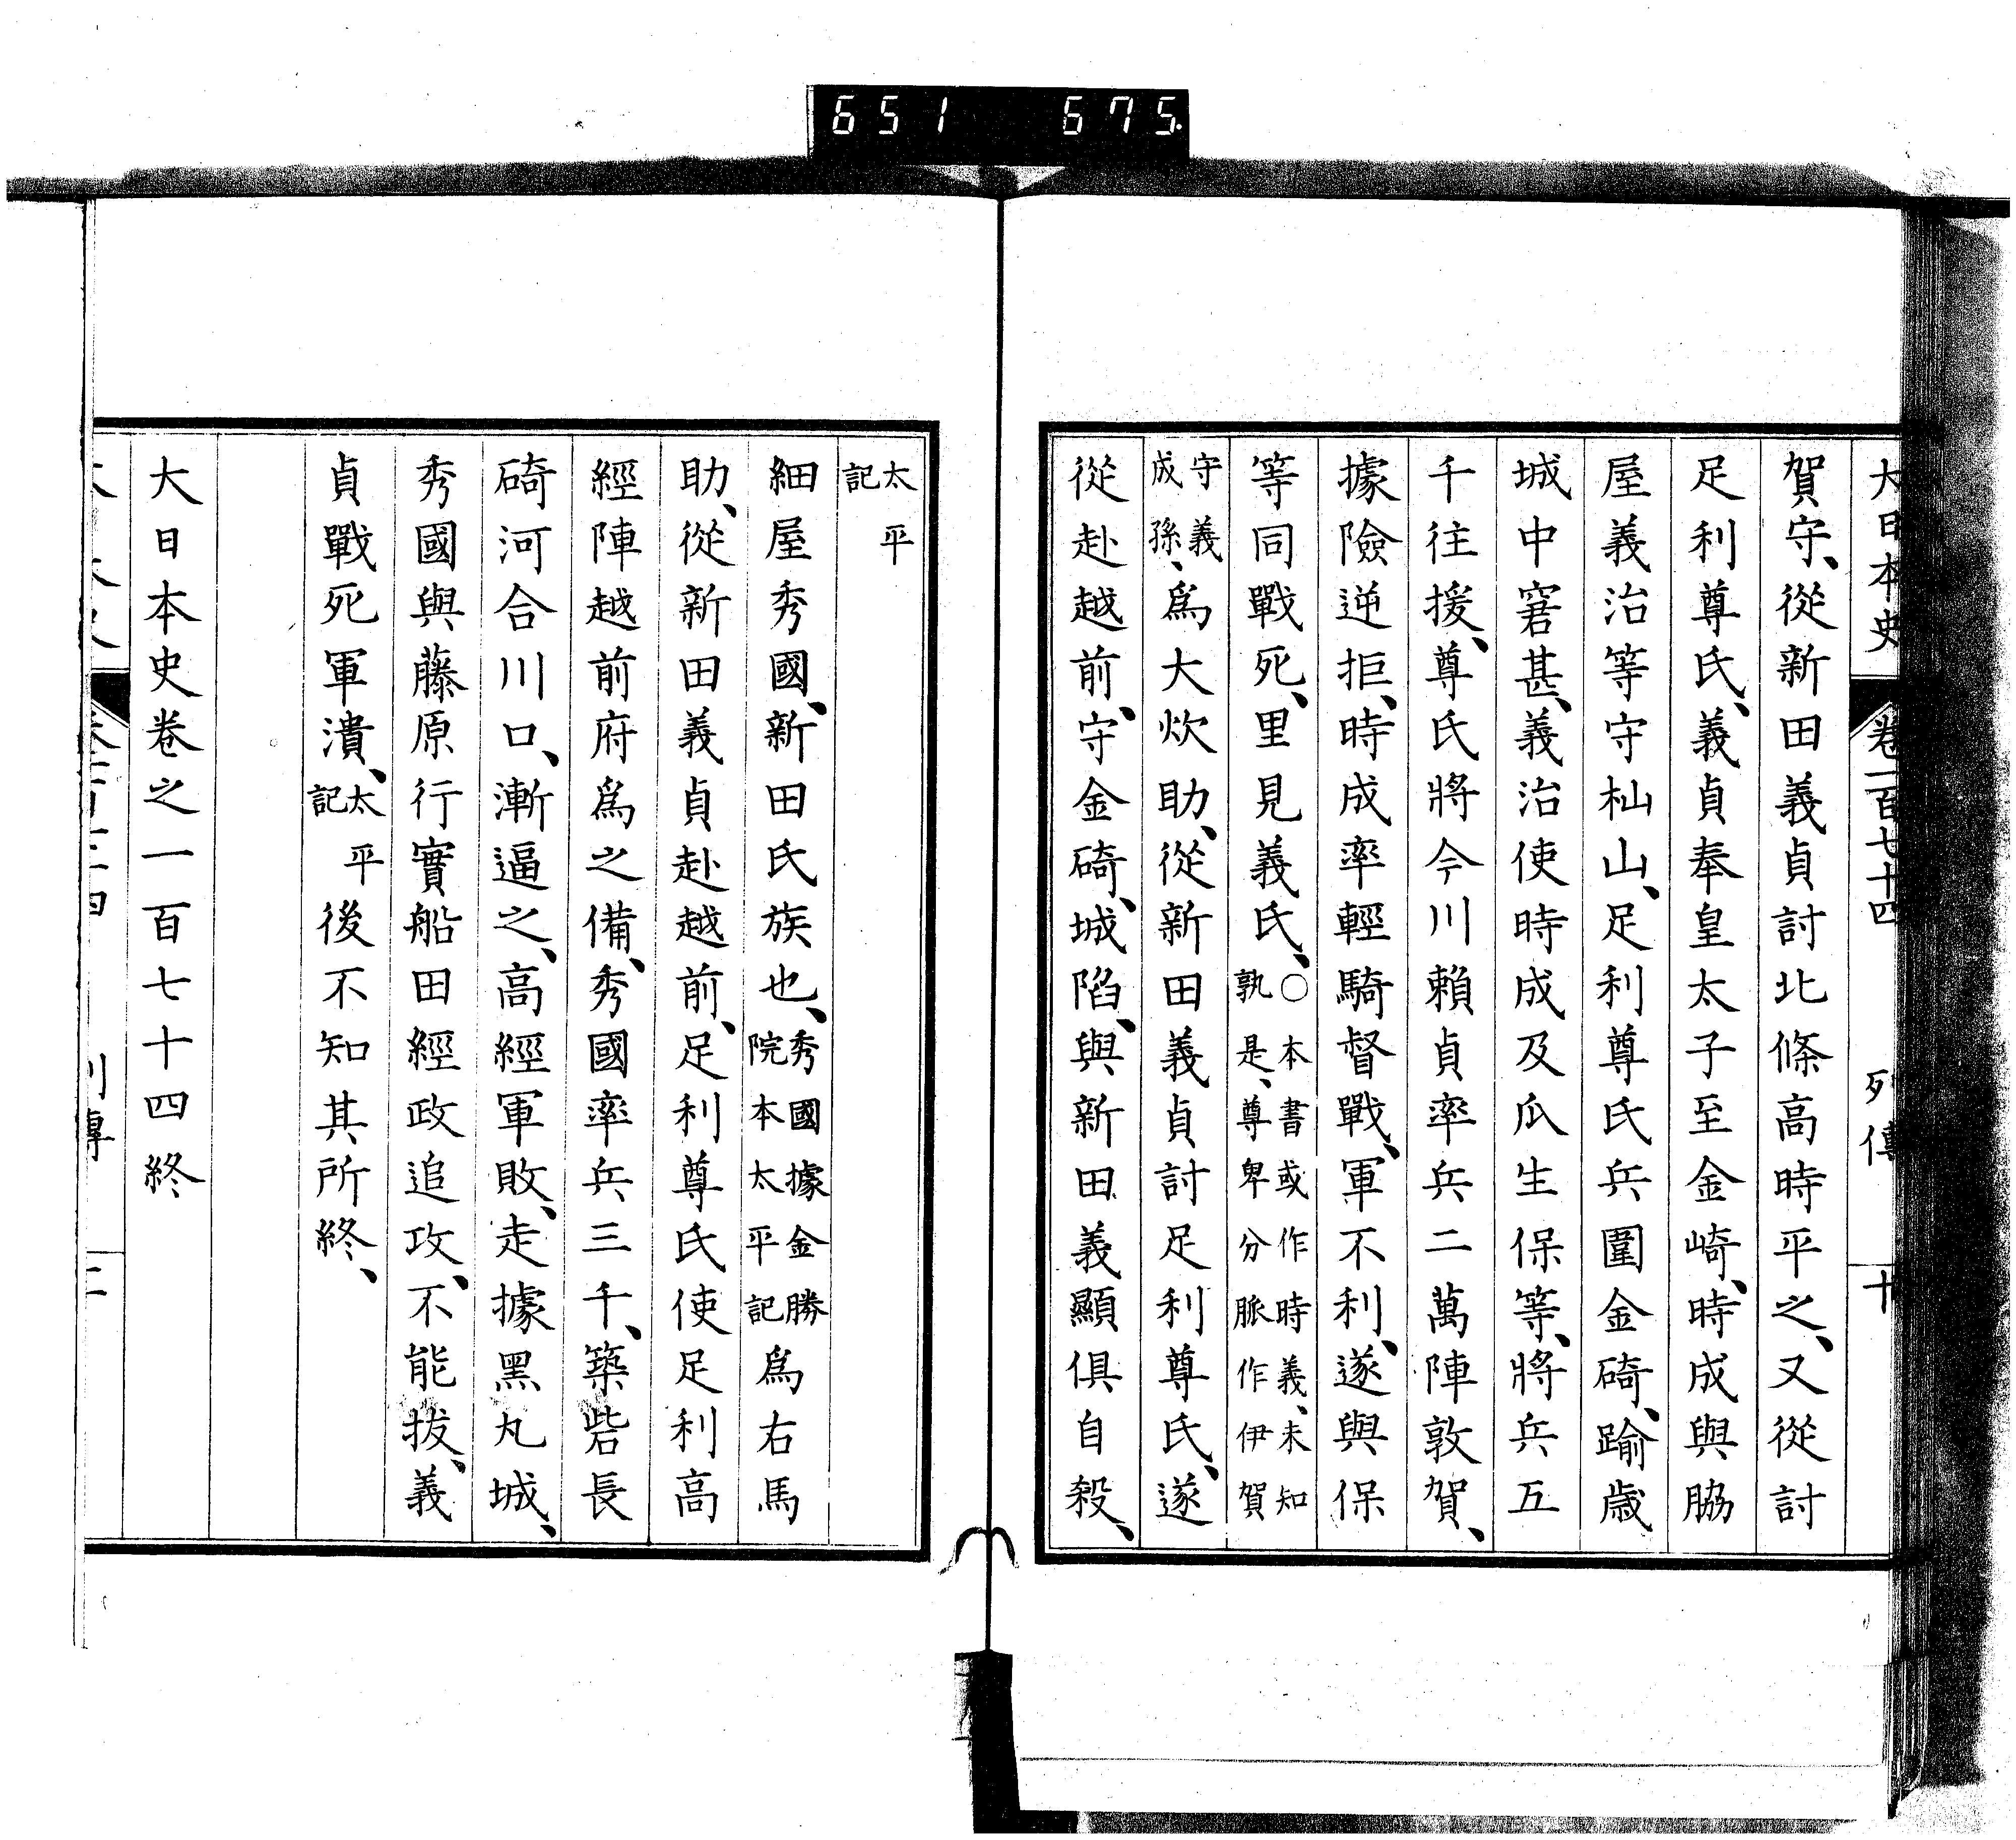 651 675.
大日本史 卷一百七十四 列傳 十
賀守、從新田義貞討北條高時平之、又從討
足利尊氏、義貞奉皇太子至金崎、時成與脇
屋義治等守杣山、足利尊氏兵圍金碕、踰歲
城中窘甚、義治使時成及瓜生保等、將兵五
千往援、尊氏將今川賴貞率兵二萬陣敦賀、
據險逆拒、時成率輕騎督戰、軍不利、遂與保
等同戰死、里見義氏、○本書或作時義、未知孰是、尊卑分脈作伊賀
守義成孫、爲大炊助、從新田義貞討足利尊氏、遂
從赴越前、守金碕、城陷、與新田義顯俱自殺、
太平記
細屋秀國、新田氏族也、秀國據金勝院本太平記爲右馬
助、從新田義貞赴越前、足利尊氏使足利高
經陣越前府爲之備、秀國率兵三千、築砦長
碕河合川口、漸逼之、高經軍敗、走據黑丸城、
秀國與藤原行實船田經政追攻、不能拔、義
貞戰死軍潰、太平記後不知其所終、
大日本史卷之一百七十四終